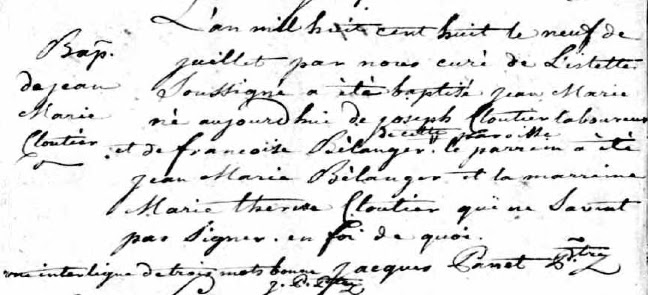 Bap.
de jean
Marie
Cloutier
L'an mil huit cent huit le neuf de
juillet par nous curé de L'islette
Soussigné a été baptisé jean Marie
né aujourdhui de joseph Cloutier laboureur
de cette paroisse
et de francoise Bélanger. le parrein a été
jean Marie Bélanger et la marreine
Marie therese Cloutier qui ne Savent
pas Signer. en foi de quoi.
une interligne de trois mots bonne jacques Panet Ptre